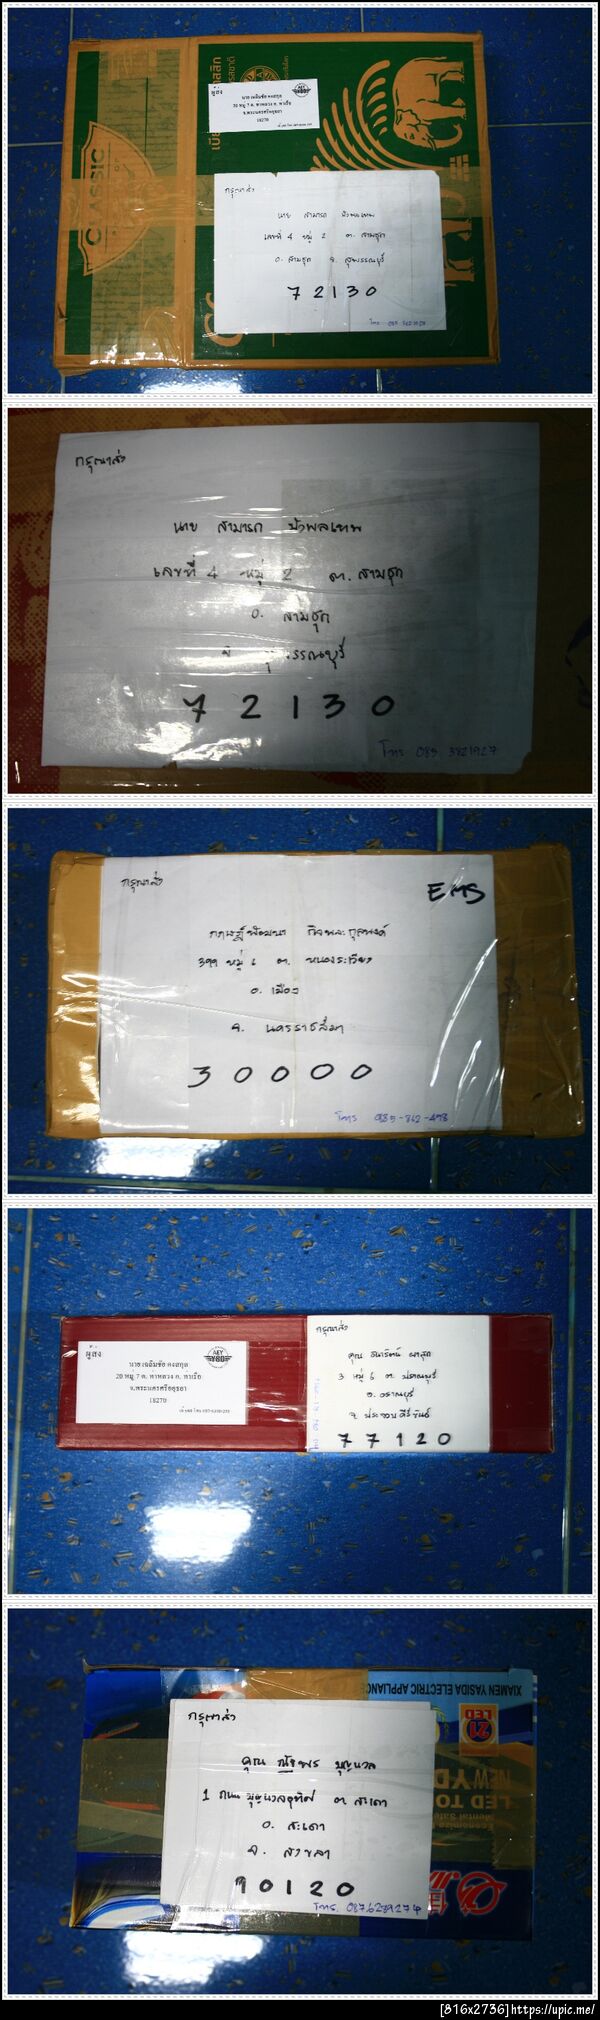 ผู้ส่ง
นาย เฉลิมชัย คงสกุล
20 หมู่ 7 ต. ท่าหลวง อ. ท่าเรือ
จ.พระนครศรีอยุธยา
18270
CLASSIC
กรุณาส่ง
นาย สามารถ บัวพลเทพ
เลขที่ 4 หมู่ 2 ต. สามชุก
อ. สามชุก จ. สุพรรณบุรี
72130
โทร
กรุณาส่ง
นาย สามารถ บัวพลเทพ
เลขที่ 4 หมู่ 2 ต. สามชุก
อ. สามชุก
จ รรณบุรี
72130
โทร 085 3821927
กรุณาส่ง
EMS
399 หมู่ 6 ต. หนองระเวียง
อ. เมือง
จ. นครราชสีมา
30000
โทร
ผู้ส่ง
AEY
นาย เฉลิมชัย คงสกุล
20 หมู่ 7 ต. ท่าหลวง อ. ท่าเรือ
จ.พระนครศรีอยุธยา
18270
กรุณาส่ง
คุณ ธนารัตน์ ผาสุก
3 หมู่ 6 ต. ปราณบุรี
อ. ปราณบุรี
จ. ประจวบคีรีขันธ์
77120
XIAMEN YASIDA ELECTRIC APPLIANCE
21
LED
NEW YD
LED TO
กรุณาส่ง
คุณ ณัฐพร บุญนวล
1 ถนน ต. สะเดา
อ. สะเดา
จ. สงขลา
90120
โทร. 0876289274
[816x2736] https://upic.me/